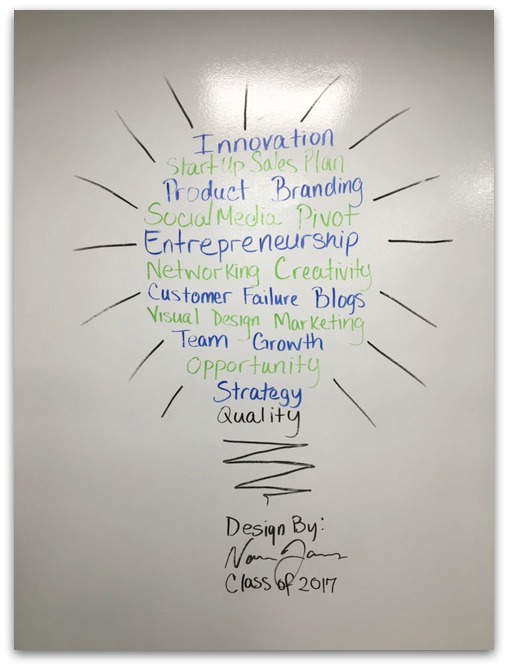 Innovation
StartUp Sales Plan
Product Branding
Social Media Pivot
Entrepreneurship
Networking Creativity
Customer Failure Blogs
Visual Design Marketing
Team Growth
Opportunity
Strategy
Quality
Design By:
Class of 2017